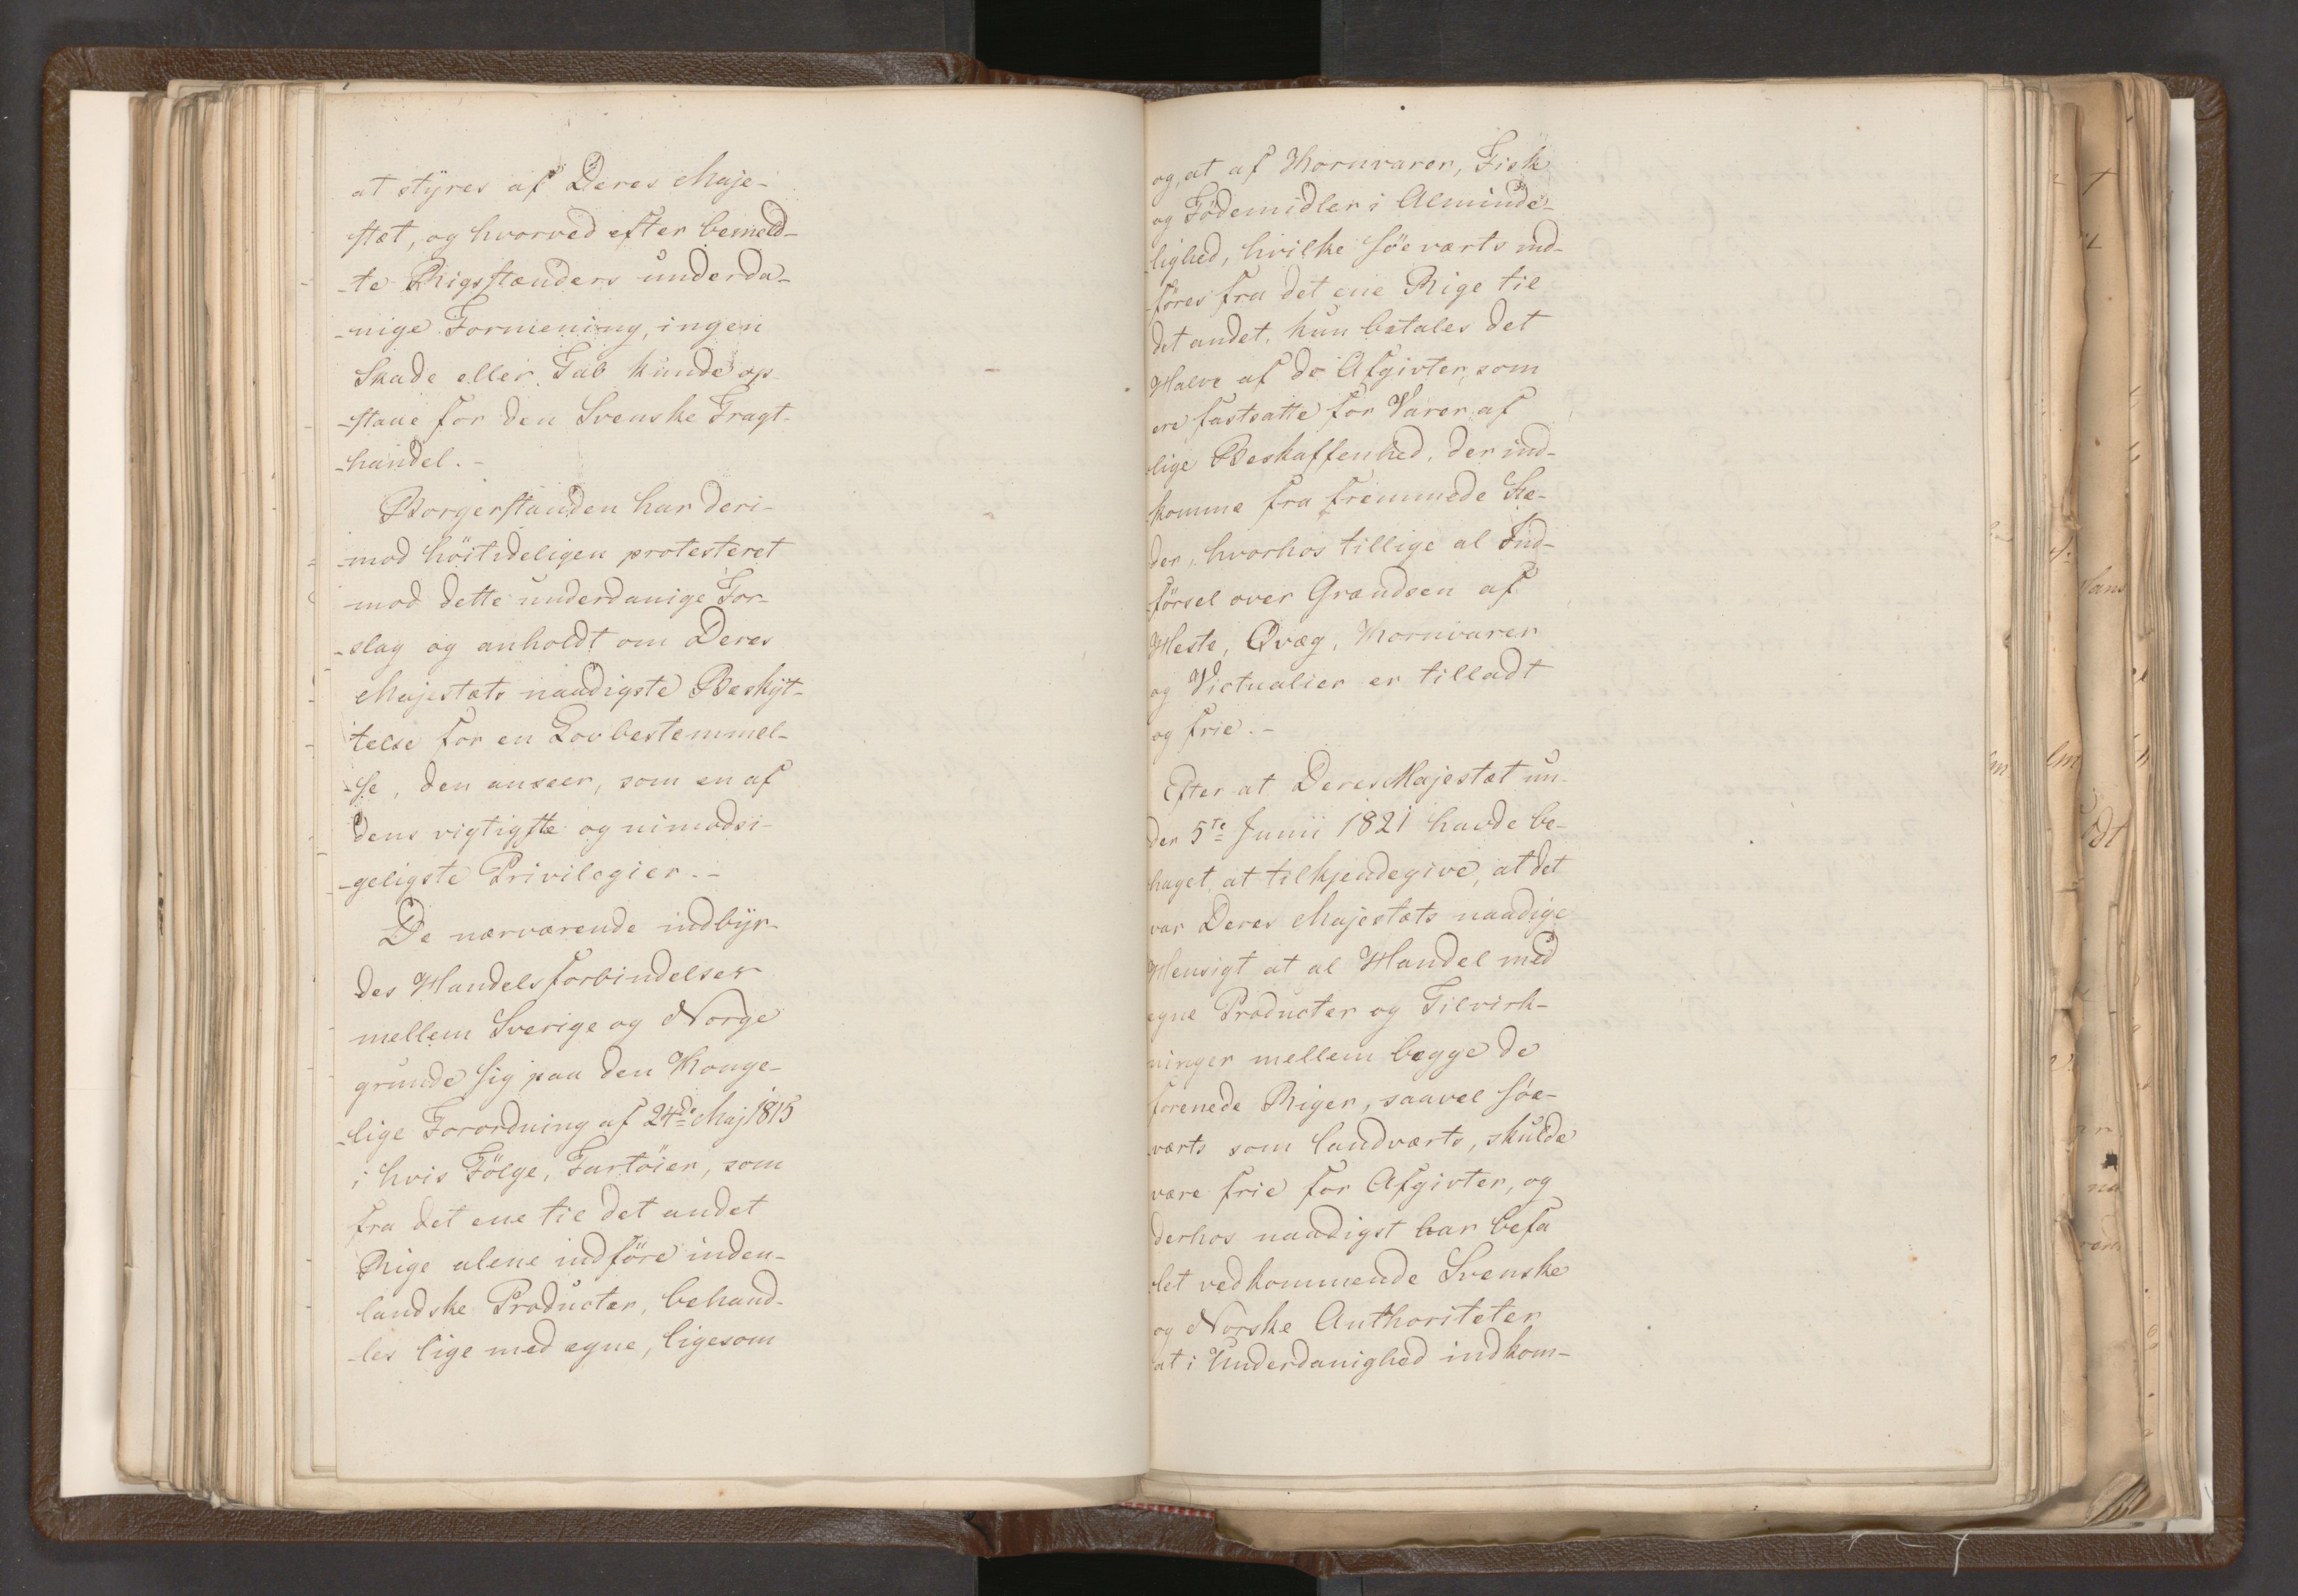 at styres af Deres Maje-
stæt, og hvorved efter bemeld-
-te Rigsstænders underda-
-nige Formening, ingen
Skade eller Tab kunde op-
-staae for den Svenske Fragt-
-handel.-
Borgerstanden har deri-
-mod höitideligen protesteret
mod dette underdanige For-
-slag og anholdt om Deres
Majestæts naadigste Beskyt-
telse for en Lovbestemmel-
-se, den anseer, som en af
dens vigtigste og uimodsi-
-geligste Privilegier.-
De nærværende indbyr-
des Handelsforbindelser
mellem Sverige og Norge
grunde sig paa den Konge-
-lige Forordning af 24de Maj 1815
i hvis Fölge, Fartöier, som
fra det ene til det andet
Rige alene indföre inden-
landske Producter, behand-
-les lige med egne, ligesom
og, at af Kornvarer, Fisk
og Födemidler i Alminde-
-lighed, hvilke söeværts ind-
-föres fra det ene Rige til
det andet, kun betales det
Halve af de Afgivter, som
ere fastsatte for Varer af
lige Beskaffenhed, der ind-
komme fra fremmede Ste-
der, hvorhos tillige al Ind-
-försel over Grændsen af
Heste, Qvæg, Kornvarer
og Victualier er tilladt
og frie.-
Efter at Deres Majestæt un-
der 5te Junii 1821 havde be-
haget, at tilkjendegive, at det
var Deres Majestæts naadige
Hensigt at al Handel med
egne Producter og Tilvirk-
ninger mellem begge de
forenede Riger, saavel söe-
-værts som landværts, skulde
være frie for Afgivter, og
derhos naadigst har befa
let vedkommende Svenske
og Norske Authoriteter
at i Underdanighed indkom-